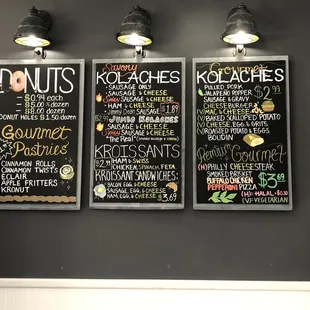 DONUTS
$0.94 each
$5.00 ½ dozen
$8.00 dozen
DONUT HOLES $1.50 dozen
Gourmet
Pastries
CINNAMON ROLLS
CINNAMON TWISTS
ECLAIR
APPLE FRITTERS
KRONUT
Savory
KOLACHES
SAUSAGE ONLY
SAUSAGE & CHEESE
Spicy SAUSAGE & CHEESE
HAM & CHEESE
SAUSAGE & CHEESE
$1.89
JUMBO KOLACHES
SAUSAGE & CHEESE
Spicy SAUSAGE & CHEESE
"The Real"
KROISSANTS
$2.99
HAM & SWISS
CHICKEN, SPINACH, FETA
KROISSANT SANDWICHES:
BACON, EGG, & CHEESE
SAUSAGE, EGG, & CHEESE
HAM, EGG, & CHEESE
$3.69
Gourmet
KOLACHES
PULLED PORK
JALAPENO POPPER
SAUSAGE & GRAVY
CHEESEBURGER
$2.99
(V) BAKED SCALLOPED POTATO
CHEESE, EGG, & GRITS
(V) ROASTED POTATO & EGG
BOUDIN
Premium
Gourmet
(H) PHILLY CHEESESTEAK
SMOKED BRISKET
BUFFALO CHICKEN
PEPPERONI PIZZA
$3.69
(H): HALAL +0.30
(V): VEGETARIAN